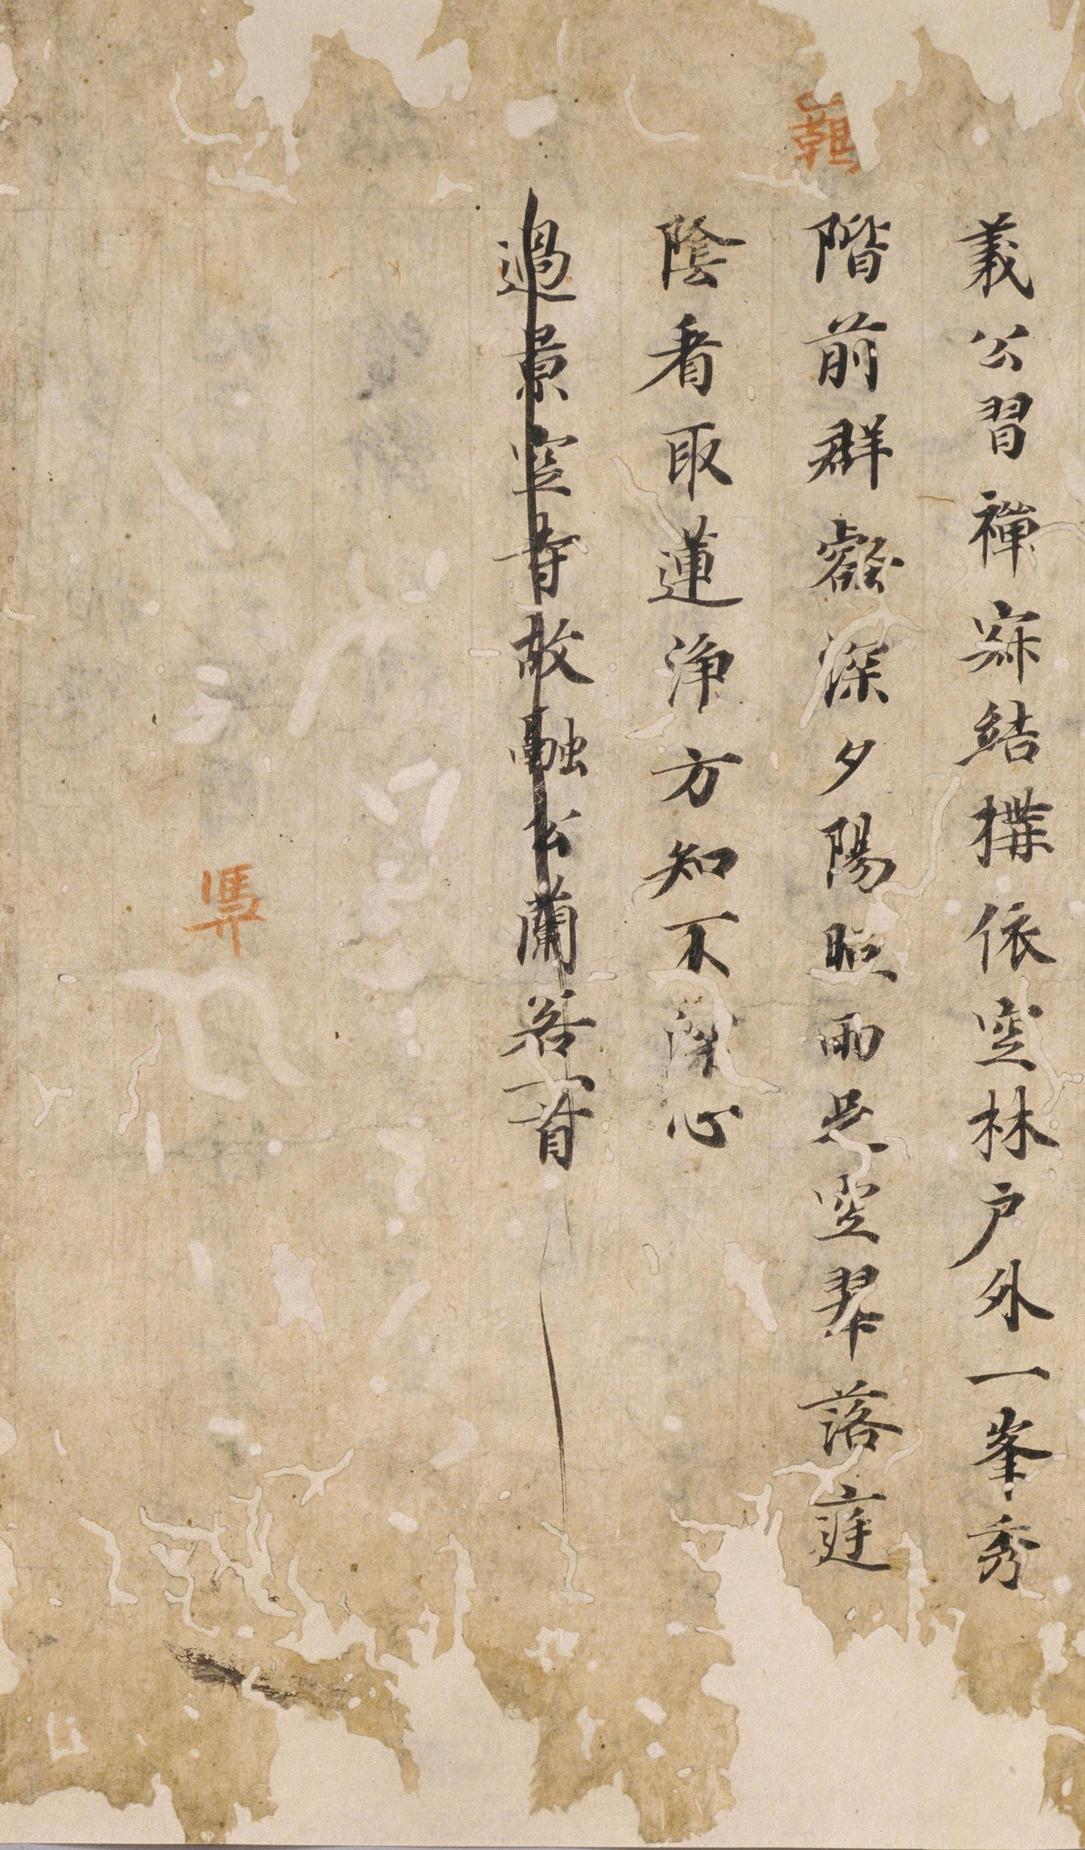 義公習禪寂結構依空林戶外一峯秀
階前群壑深夕陽照雨足空翠落庭
陰看取蓮淨方知不深心
過景空寺故融公蘭若一首